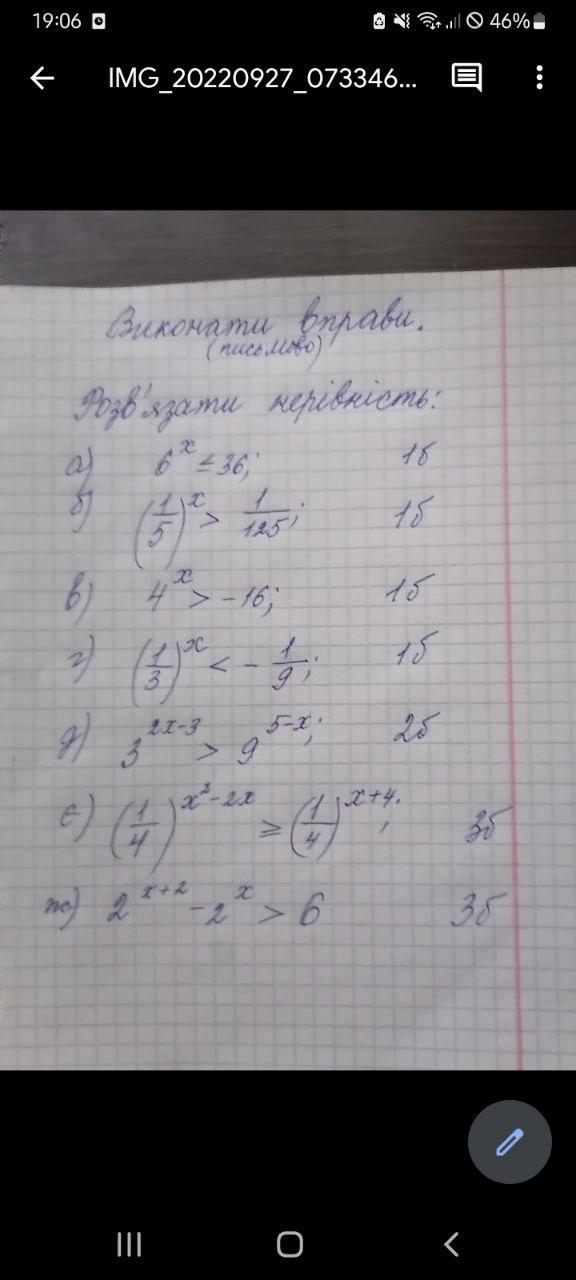 19:06 46%
IMG_20220927_073346...
Виконати вправи.
(письмово)
Розв'язати нерівність:
а) 6^x ≤ 36; 1б
б) (1/5)^x > 1/125; 1б
в) 4^x > -16; 1б
г) (1/3)^x < - 1/9; 1б
д) 3^(2x-3) > 9^(5-x); 2б
є) (1/4)^(x²-2x) ≥ (1/4)^(x+4); 3б
ж) 2^(x+2) - 2^x > 6 3б